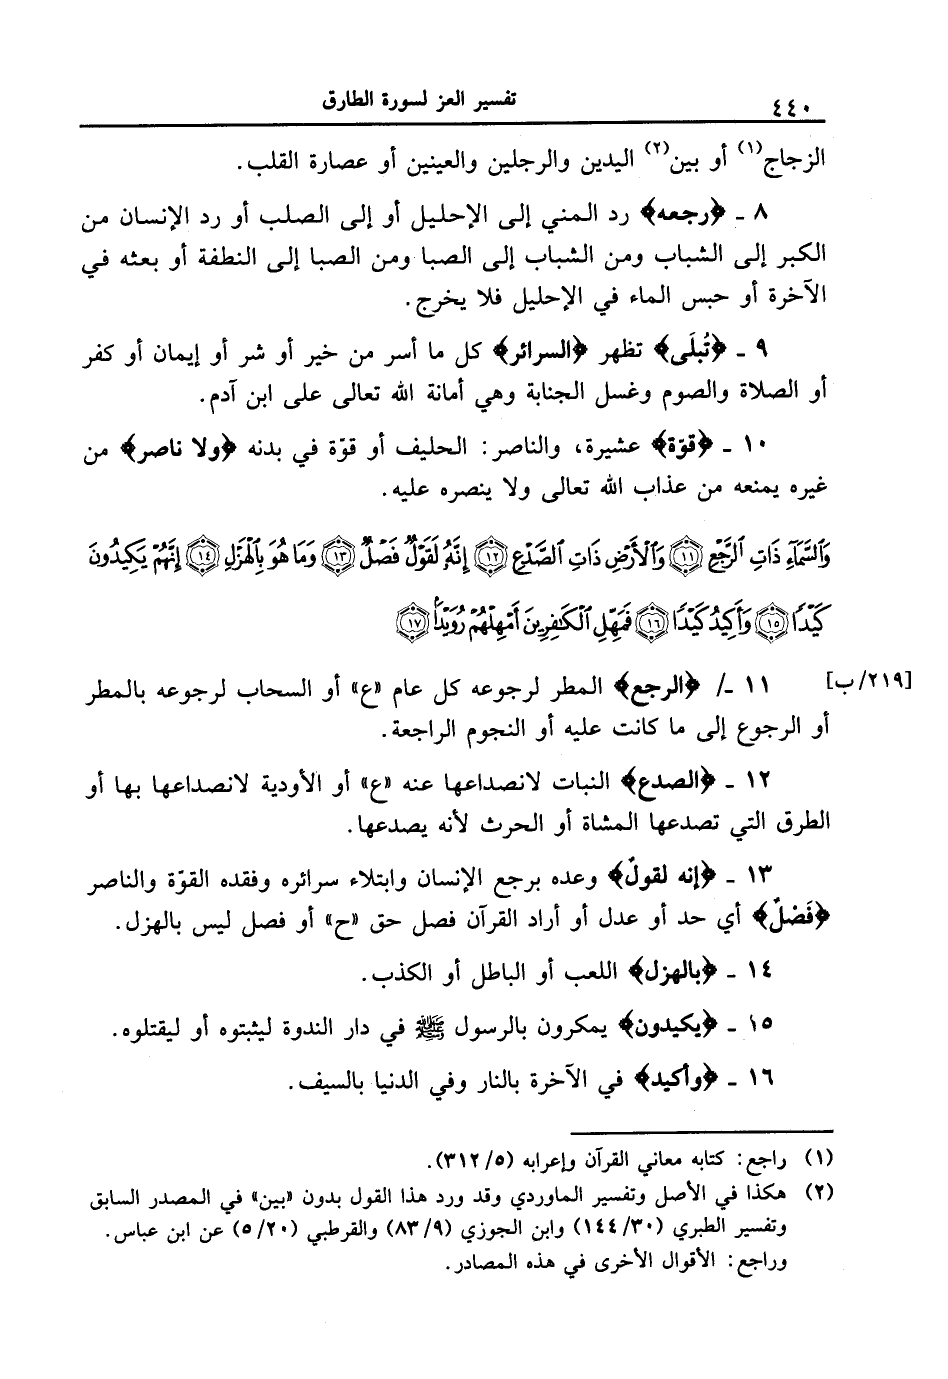 ٤٤٠ تفسير العز لسورة الطارق
الزجاج(١) أو بين(٢) اليدين والرجلين والعينين أو عصارة القلب.
٨ ـ ﴿رجعه﴾ رد المني إلى الإحليل أو إلى الصلب أو رد الإنسان من
الكبر إلى الشباب ومن الشباب إلى الصبا ومن الصبا إلى النطفة أو بعثه في
الآخرة أو حبس الماء في الإحليل فلا يخرج.
٩ ـ ﴿تُبلَى﴾ تظهر ﴿السرائر﴾ كل ما أسر من خير أو شر أو إيمان أو كفر
أو الصلاة والصوم وغسل الجنابة وهي أمانة الله تعالى على ابن آدم.
١٠ ـ ﴿قوّة﴾ عشيرة، والناصر: الحليف أو قوّة في بدنه ﴿ولا ناصر﴾ من
غيره يمنعه من عذاب الله تعالى ولا ينصره عليه.
وَٱلسَّمَآءِ ذَاتِ ٱلرَّجْعِ ١١ وَٱلْأَرْضِ ذَاتِ ٱلصَّدْعِ ١٢ إِنَّهُۥ لَقَوْلٌ فَصْلٌ ١٣ وَمَا هُوَ بِٱلْهَزْلِ ١٤ إِنَّهُمْ يَكِيدُونَ
كَيْدًا ١٥ وَأَكِيدُ كَيْدًا ١٦ فَمَهِّلِ ٱلْكَٰفِرِينَ أَمْهِلْهُمْ رُوَيْدًۢا ١٧
[٢١٩/ب] ١١ ـ/ ﴿الرجع﴾ المطر لرجوعه كل عام «ع» أو السحاب لرجوعه بالمطر
أو الرجوع إلى ما كانت عليه أو النجوم الراجعة.
١٢ ـ ﴿الصدع﴾ النبات لانصداعها عنه «ع» أو الأودية لانصداعها بها أو
الطرق التي تصدعها المشاة أو الحرث لأنه يصدعها.
١٣ ـ ﴿إنه لقولٌ﴾ وعده برجع الإنسان وابتلاء سرائره وفقده القوّة والناصر
﴿فَصْلٌ﴾ أي حد أو عدل أو أراد القرآن فصل حق «ح» أو فصل ليس بالهزل.
١٤ ـ ﴿بالهزل﴾ اللعب أو الباطل أو الكذب.
١٥ ـ ﴿يكيدون﴾ يمكرون بالرسول ﷺ في دار الندوة ليثبتوه أو ليقتلوه.
١٦ ـ ﴿وأكيد﴾ في الآخرة بالنار وفي الدنيا بالسيف.
(١) راجع: كتابه معاني القرآن وإعرابه (٣١٢/٥).
(٢) هكذا في الأصل وتفسير الماوردي وقد ورد هذا القول بدون «بين» في المصدر السابق
وتفسير الطبري (١٤٤/٣٠) وابن الجوزي (٨٣/٩) والقرطبي (٥/٢٠) عن ابن عباس.
وراجع: الأقوال الأخرى في هذه المصادر.